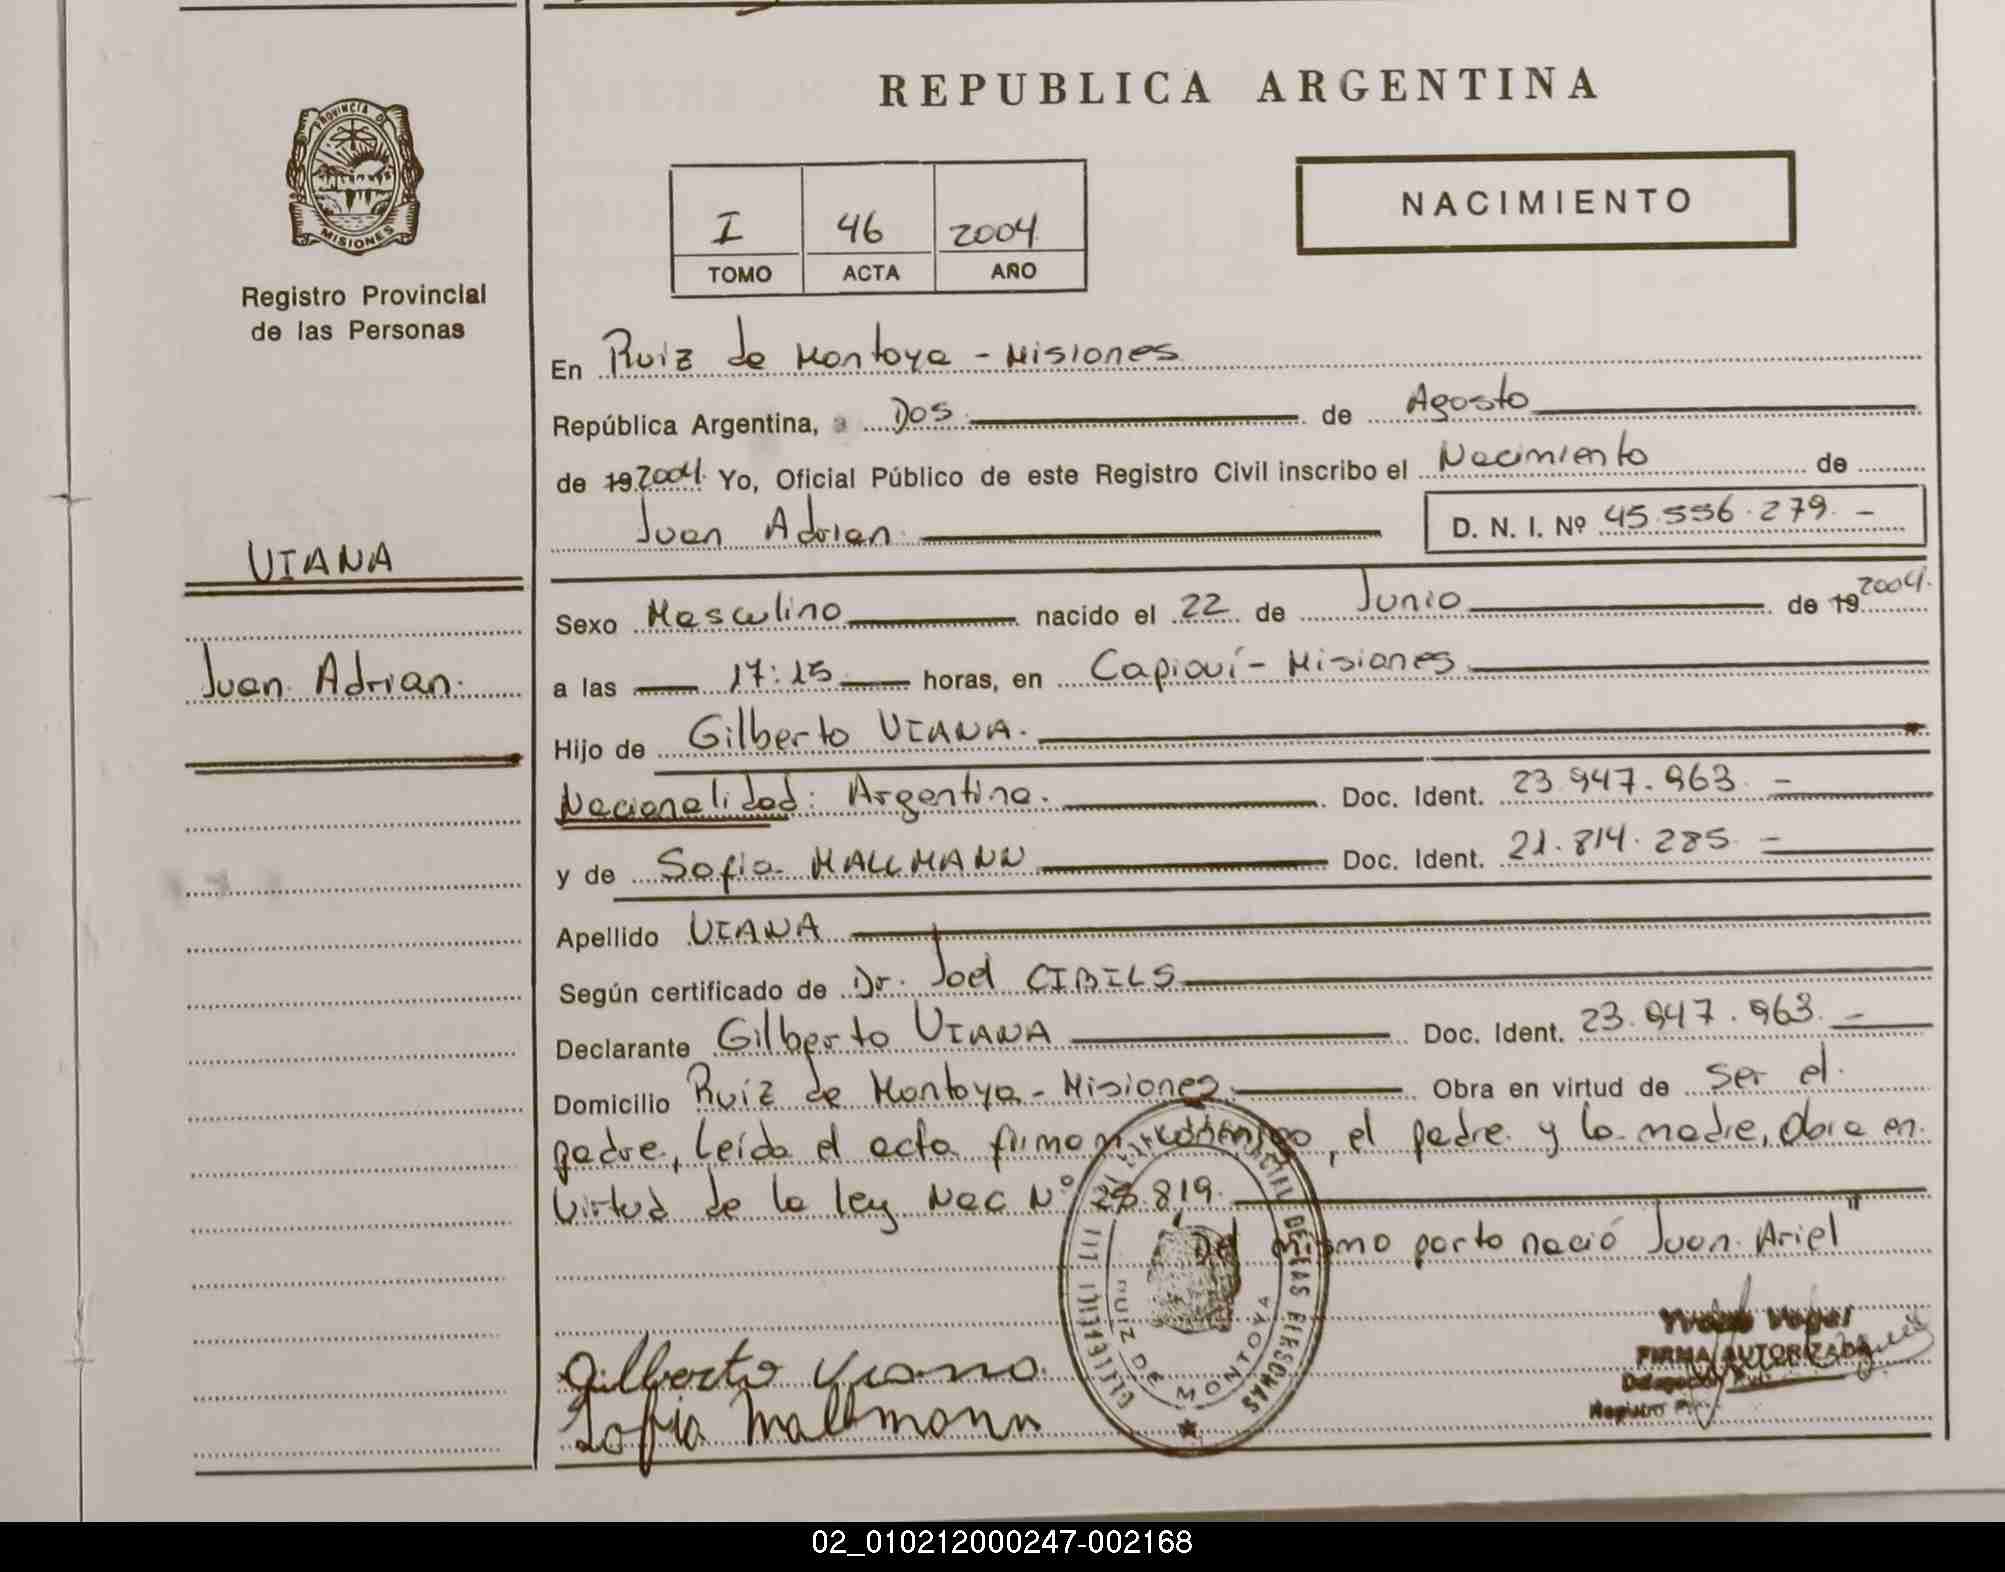 REPUBLICA ARGENTINA
PROVINCIA DE
MISIONES
Registro Provincial
de las Personas
I 46 2004
TOMO ACTA AÑO
NACIMIENTO
En Ruiz de Montoya - Misiones
República Argentina, a Dos de Agosto
de 19 2004 Yo, Oficial Público de este Registro Civil inscribo el Nacimiento de
Juan Adrian D. N. I. Nº 45.556.279.-
VIANA
Juan Adrian.
Sexo Masculino nacido el 22 de Junio de 19 2004.
a las 17:15 horas, en Capioví - Misiones
Hijo de Gilberto VIANA.
Nacionalidad: Argentina. Doc. Ident. 23.947.963.-
y de Sofia MALLMANN Doc. Ident. 21.814.285.-
Apellido VIANA
Según certificado de Dr. Joel CIBILS
Declarante Gilberto VIANA Doc. Ident. 23.947.963.-
Domicilio Ruiz de Montoya - Misiones Obra en virtud de ser el
padre, leída el acta firman conmigo, el padre y la madre, Obra en
virtud de la ley Nac Nº 819.
Del mismo parto nació Juan Ariel"
DE LAS PERSONAS
RUIZ DE MONTOYA
Gilberto Viana.
Sofia Mallmann
Vogel
FIRMA AUTORIZADA
02_010212000247-002168